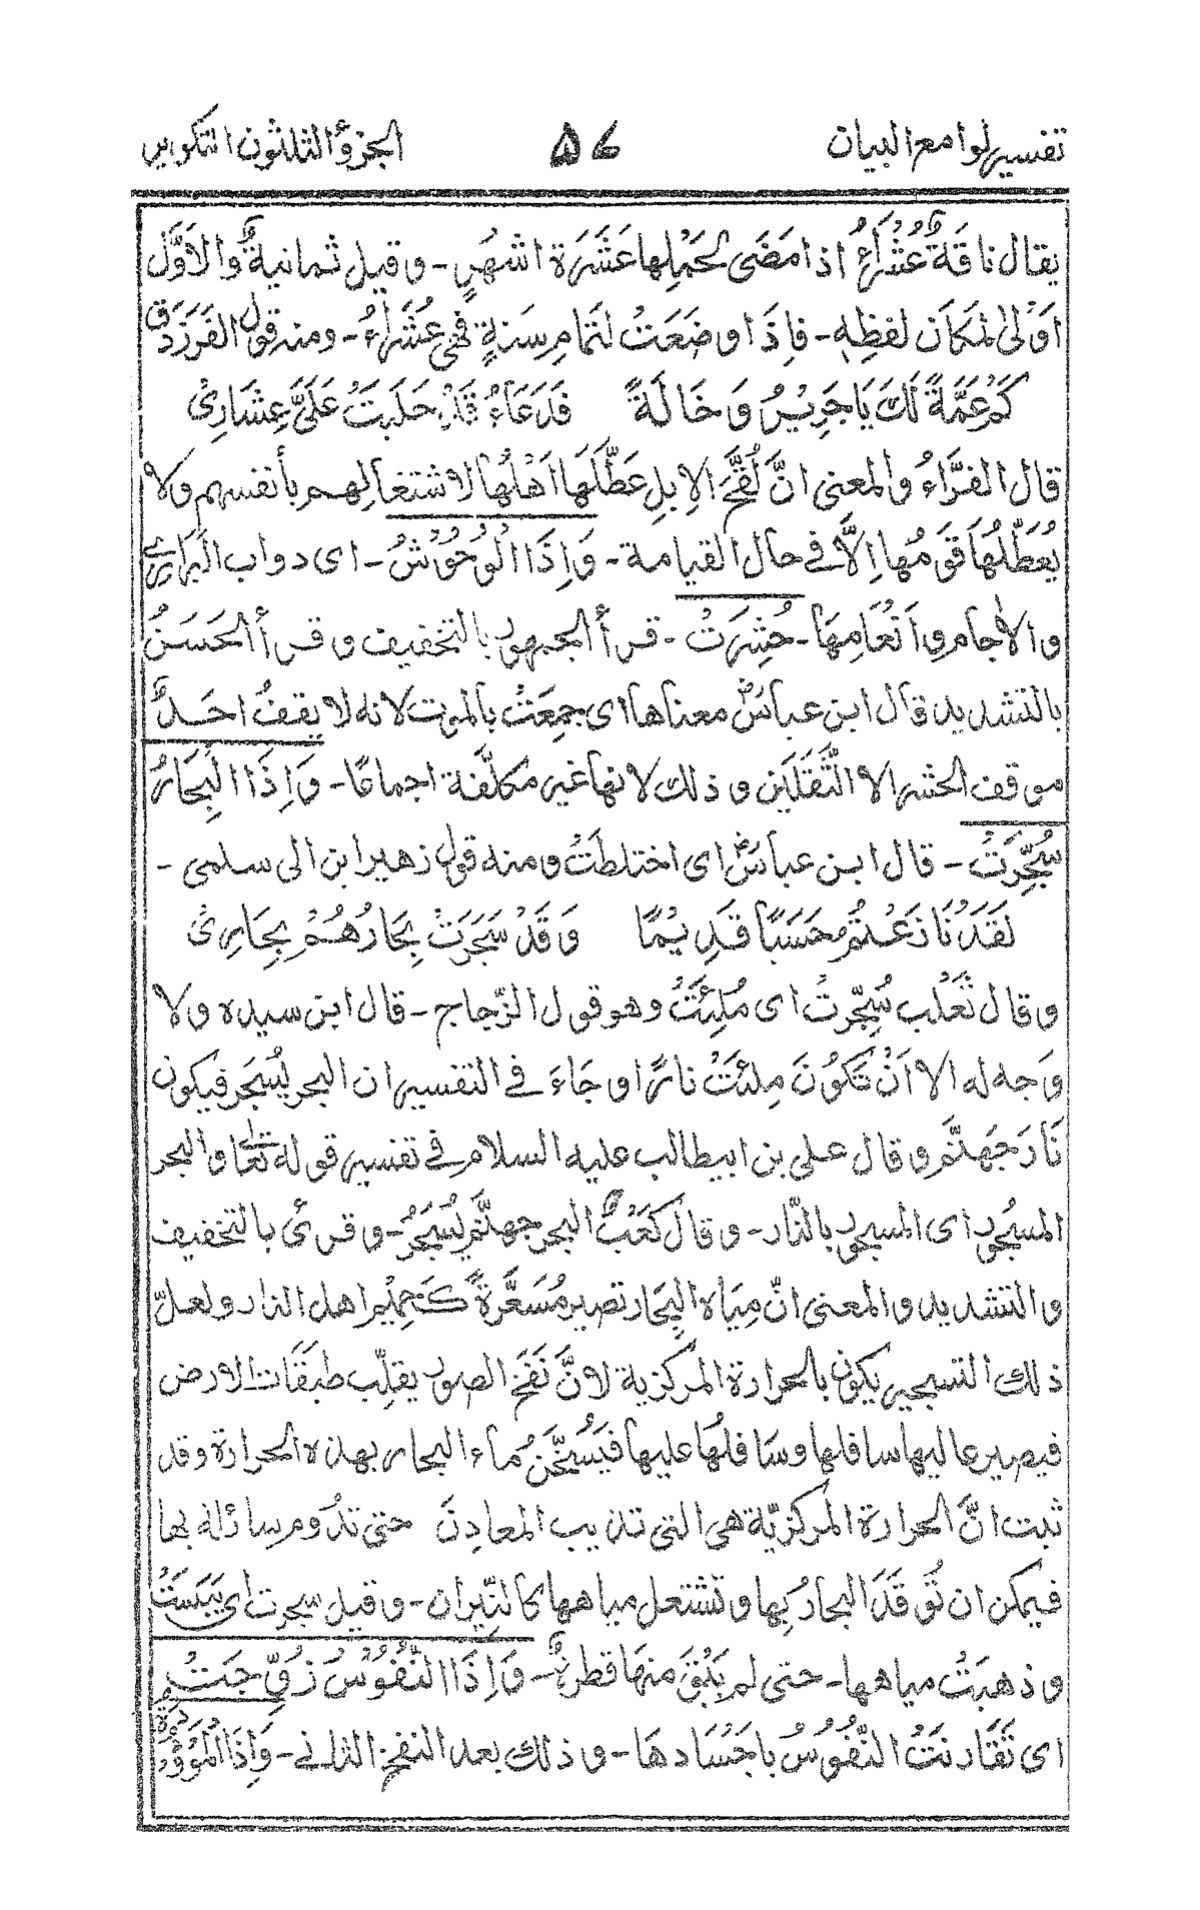 تفسير لوامع البيان ۵۷ الجزؤ الثلثون التكوير
يقال ناقَةٌ عُشُرَاءُ اذا مَضَى لحَمْلِها عَشَرَة اشهَرٍ - وقيل ثمانيةٌ والاَوَّل
اَوْلىٰ لمكاَن لفظِهٖ - فاِذَا وضَعَتْ لتَمامِ سَنةٍ فهى عُشَرَاءُ - ومنه قول الفَرَزدَق
كَمْ عَمَّةً لَكَ يَا جَرِيْرُ وَخَالَةً فَدَعَاءُ قَدْ حَلَبَتْ عَلَىَّ عِشَارِىْ
قال الفرَّاءُ والمعنى انَّ لُقَّحَ الاِبلِ عَطَّلَهَا اَهْلُهَا لاشتغالِهم بأنفسهم ولا
يُعَطِّلُهَا قَومُها اِلَّا فى حال القيامة - وَاِذَا الْوُحُوْشُ - اى دواب البَرارِى
والاٰجام واَنْعَامِهَا - حُشِرَتْ - قرأ الجمهور بالتخفيف وقرأ الحَسَنُ
بالتشديد قال ابن عباسؓ معناها اى جمِعَتْ بالموت لانه لا يقفُ احدٌ
موقف الحشر الا الثَّقَلَيَن وذلك لانها غير مكلَّفة اجماعًا - وَاِذَا الْبِحَارُ
سُجِّرَتْ - قال ابن عباسؓ اى اختلطَتْ ومنه قول زهير ابن الى سلمى -
لَقَدْ نَازَعْتُم حَسَبًا قَدِيْمًا وَقَدْ سَجَرَتْ بِحَارُهُمْ بِحَارِىْ
وقال ثَعْلب سُجِّرتْ اى مُلِئَتْ وهو قول الزّجاج - قال ابن سيده ولا
وَجه له الا اَنْ تَكوُنَ مِلئَتْ نارًا وجَاءَ فى التفسير ان البحر يُسْجَر فيكون
نَارَ جَهنَّم وقال على بن ابيطالب عليه السلام فى تفسير قوله تعالٰى والبحر
المسْجُور اى المسجور بالنّار - وقال كَعْبٌ البحر جهنَّم يُسْجَرُ - وقرئ بالتخفيف
والتشديد والمعنى انّ مِيَاه البِحَار تصير مُسَعَّرةً كَحَمِيْم اهل النار ولعلّ
ذلك التسجير يكون بالحرارة المركزية لانَّ نَفَخَ الصور يقلِّب طبَقَات الارض
فيصير عاليها سافلها وسَافلُها عليها فَيسُخَّنُ ماء البحار بهذه الحرارة وقد
ثبت انَّ الحرارة المركزيّة هى التى تذيب المعادِنَ حتى تدْوم سائلة بها
فيمكن ان تُوقَدَ البحارُ بِها وتشتعل مياهها كالنِّيران - وقيل سجرت اى يَبَسَتْ
وذهبَتْ مياهها - حتى لم يَبْقَ منهَا قطرةٌ - وَاِذَا النُّفُوْسُ زُوِّجَتْ
اى تَقَارنَتْ النُّفُوْسُ باجَسَادهَا - وذلك بعد النفخ الثانى - وَاِذَا الْمَوْؤُدَةُ